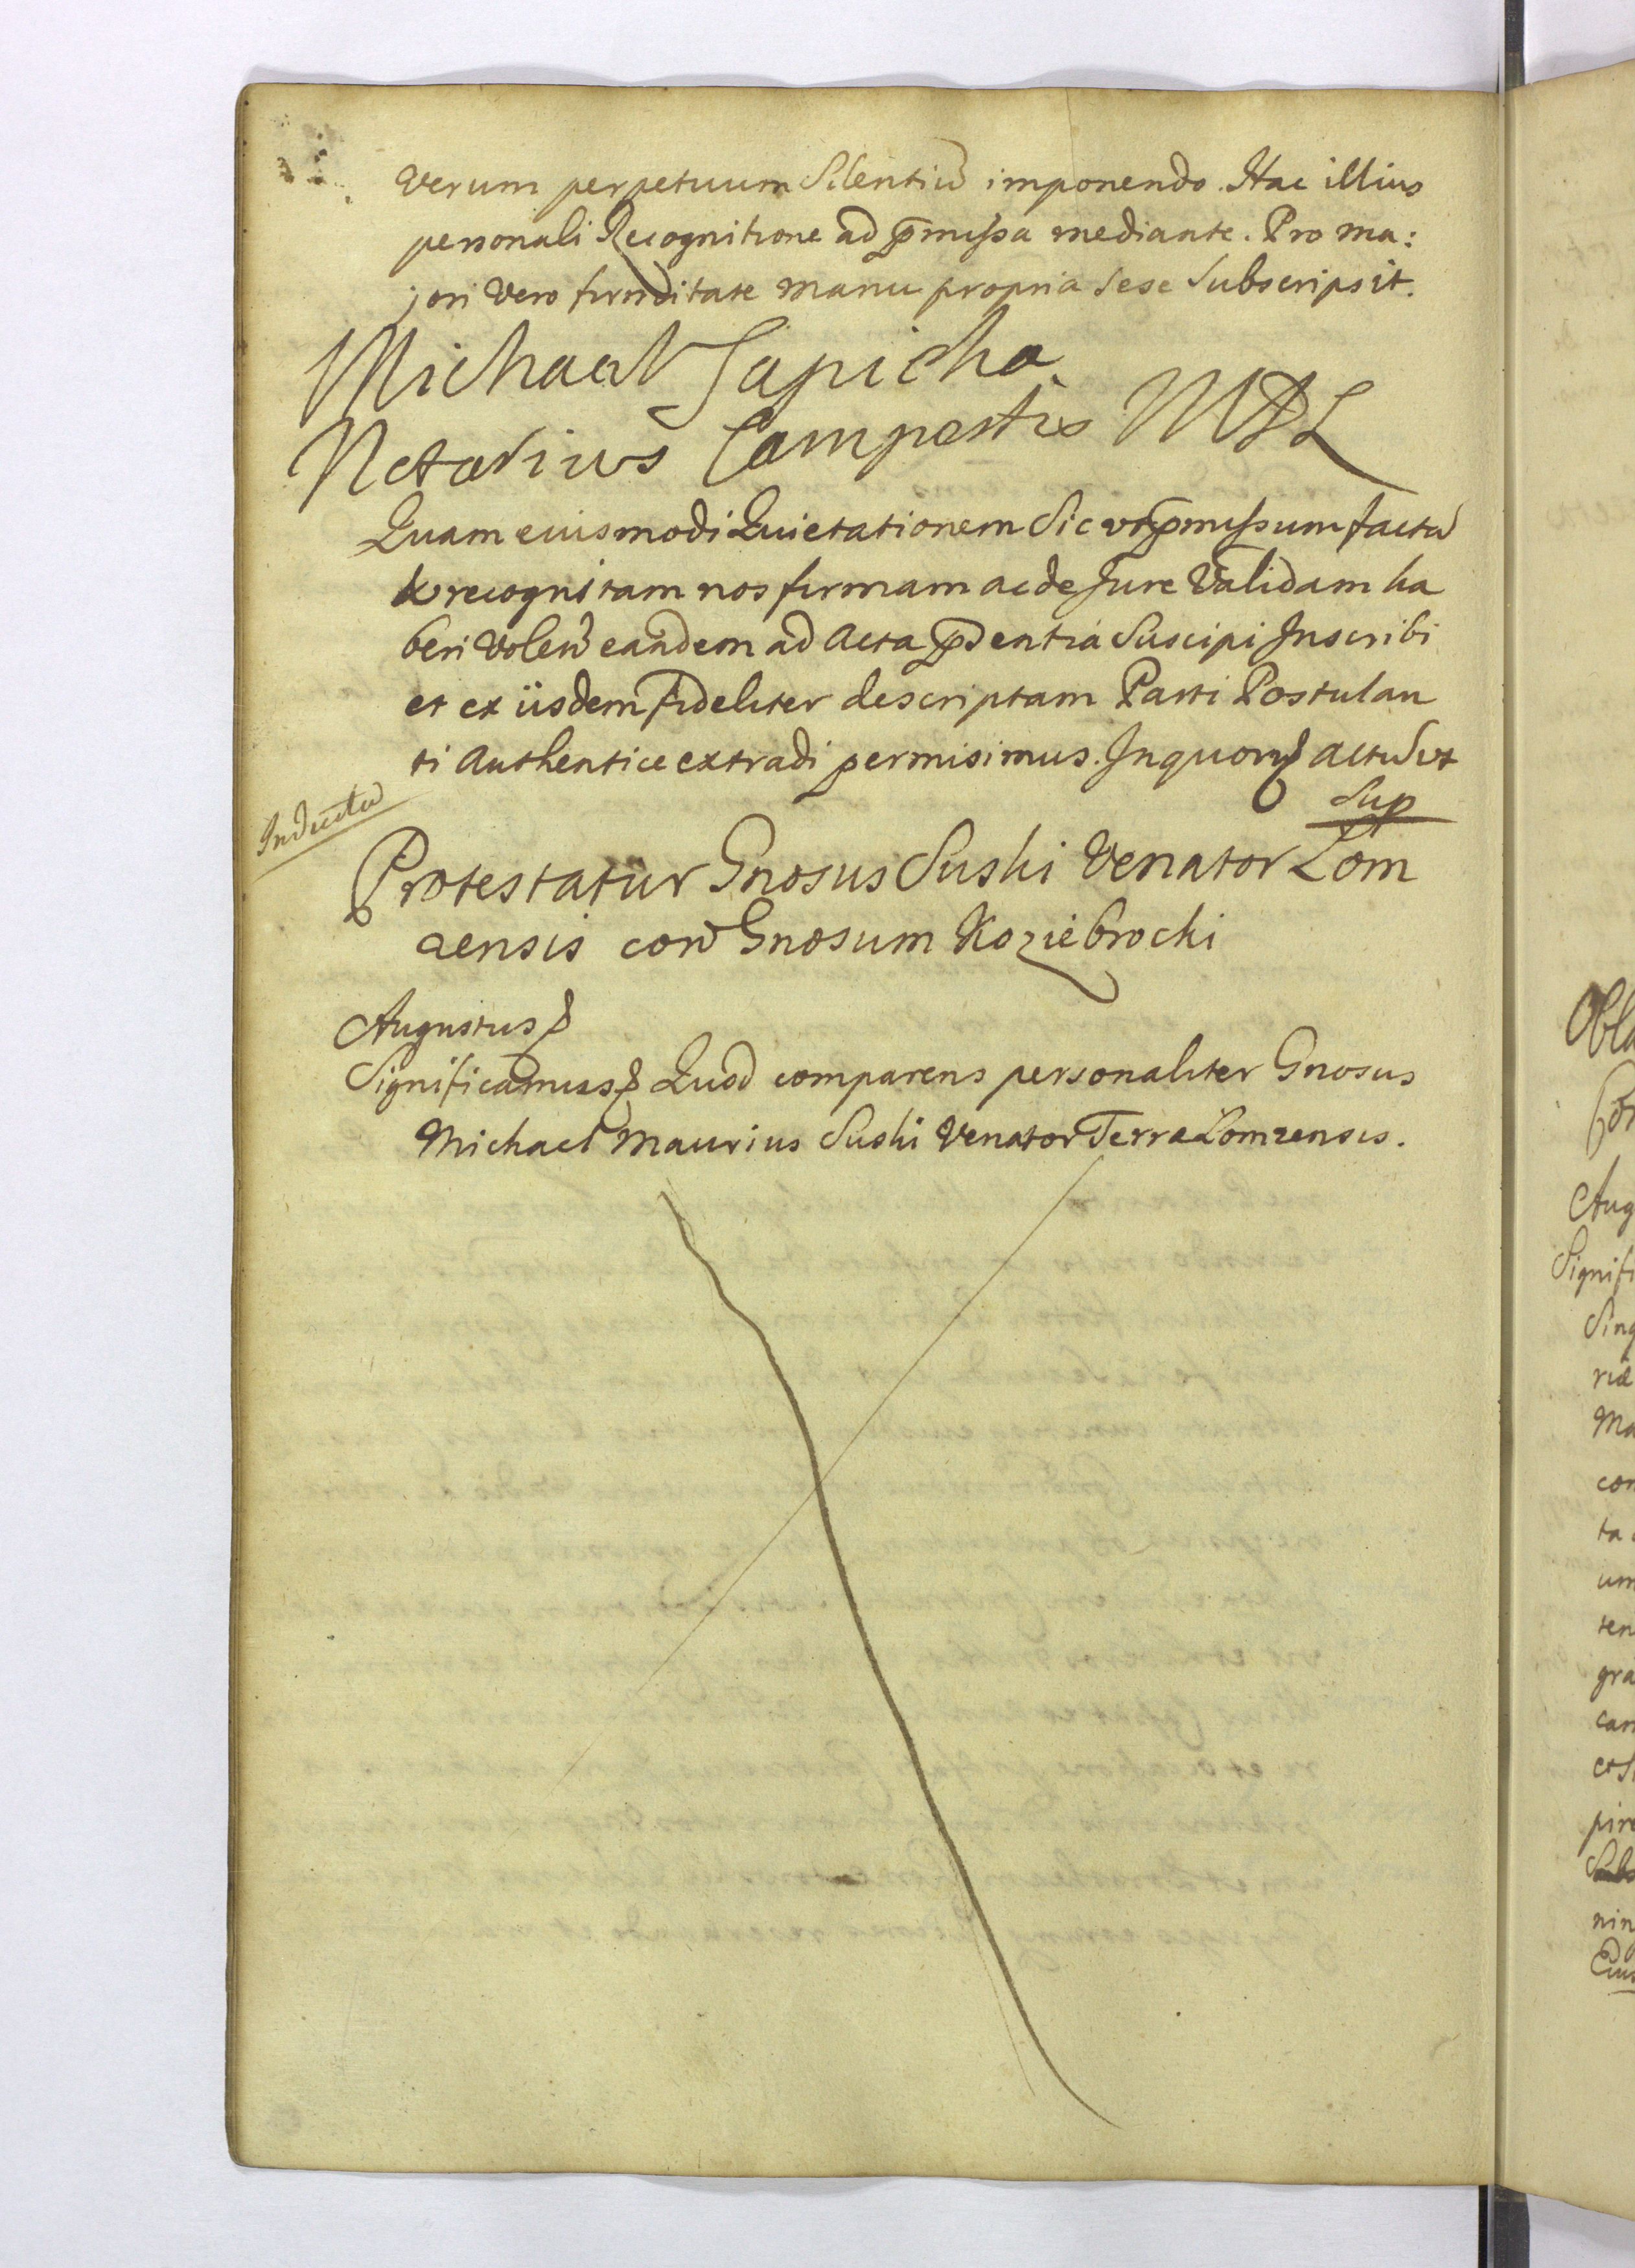 verum perpetuum Silentiū imponendo. Hac illius
personali Recognitione ad p̄missa mediante. Pro ma:
jori vero firmditate manu propria sese Subscripsit.
Michael Sapicha
Notarius Campestris MDL
Quam eiusmodi Quietationem Sic ut p̄missum factā
& recognitam nos firmam ac de Jure Validam ha
beri Volen̄ eandem ad Acta p̄sentia Suscipi Inscribi
et ex iisdem fideliter descriptam Parti Postulan
ti Authentice extradi permisimus. In quorȩ Actū ut
Sup
Inductū
Protestatur Gnosus Suski Venator Lom
zensis con̄ Gnosum Koziebrocki
Augustus
Significamus Quod comparens personaliter Gnosus
Michael Maurius Suski Venator Terræ Lomzensis.
Obla
Con
Aug
Signifi
Sing
riæ
Ma
con
ta
um
ten
gra
can
et S
pire
nin
Eius